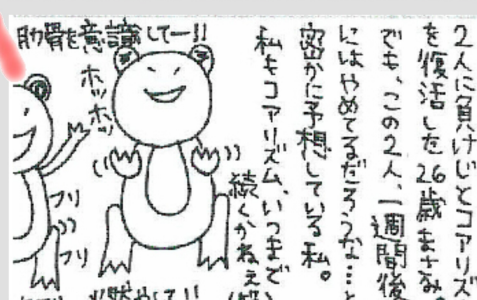 2人に負けじとコアリズ
を復活した26歳まさみ。
でも、この2人、一週間後
にはやめてるだろうな…と
密かに予想している私。
私もコアリズム、いつまで
続くかねぇ
肋骨を意識してー!!
ホッホッ
フリ
フリ
燃やして!!